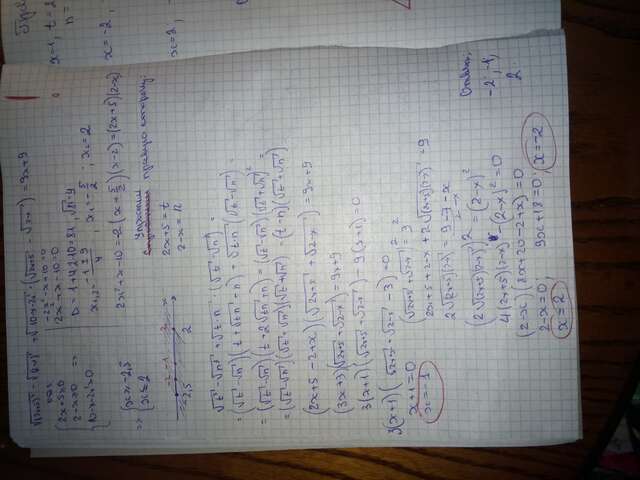 2x+5≥0
2-x≥0 ⇒
10-x-2x²≥0
-2x²-x+10=0
2x²+x-10=0
D=1+4·2·10=81, √81=9
x₁,₂=(-1±9)/4 x₁=-5/2; x₂=2
2x²+x-10=2(x+5/2)(x-2)=(2x+5)(2-x)
⇒ {x≥-2,5
x≤2
-2 -1
-2,5 2
Упростим правую сторону:
2x+5=t
2-x=n
√t³-√n³+√t·n·(√t-√n)=
=(√t-√n)(t+√tn+n)+√tn(√t-√n)=
=(√t-√n)(t+2√tn+n)=(√t-√n)(√t+√n)²=
=(√t-√n)(√t+√n)(√t+√n)=(t-n)(√t+√n)
(2x+5-2+x)(√2x+5+√2-x)=9x+9
(3x+3)(√2x+5+√2-x)=9x+9
3(x+1)(√2x+5+√2-x)-9(x+1)=0
3(x+1)(√2x+5+√2-x-3)=0
x+1=0
x=-1
(√2x+5+√2-x)²=3²
2x+5+2-x+2√(2x+5)(2-x)=9
2√(2x+5)(2-x)=9-7-x
2-x
(2√(2x+5)(2-x))²=(2-x)²
4(2x+5)(2-x)-(2-x)²=0
(2-x)(8x+20-2+x)=0
2-x=0; 9x+18=0;
x=2 x=-2
Ответ:
-2; -1;
2
x=-2,
x=2,